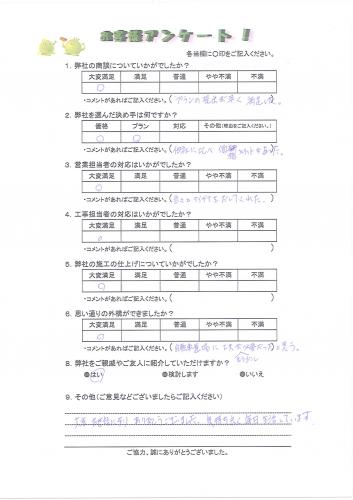 お客様アンケート！
各当欄に○印をご記入ください。
1. 弊社の商談についていかがでしたか？
大変満足 満足 普通 やや不満 不満
○
・コメントがあればご記入ください。( プランの提出が早く 満足した。 )
2. 弊社を選んだ決め手は何ですか？
価格 プラン 対応 その他(理由をご記入ください。)
○ ○
・コメントがあればご記入ください。( 他社に比べ )
3. 営業担当者の対応はいかがでしたか？
大変満足 満足 普通 やや不満 不満
○
・コメントがあればご記入ください。( してくれた。 )
4. 工事担当者の対応はいかがでしたか？
大変満足 満足 普通 やや不満 不満
○
・コメントがあればご記入ください。( )
5. 弊社の施工の仕上げについていかがでしたか？
大変満足 満足 普通 やや不満 不満
○
・コメントがあればご記入ください。( )
6. 思い通りの外構ができましたか？
大変満足 満足 普通 やや不満 不満
○
・コメントがあればご記入ください。( )と思う。
8. 弊社をご親戚やご友人に紹介していただけますか？
●はい ●検討します ●いいえ
9. その他(ご意見などございましたらご記入ください)
大変 お世話になり ありがとうございました。 気持ちよく 毎日 生活しています
ご協力、誠にありがとうございました。